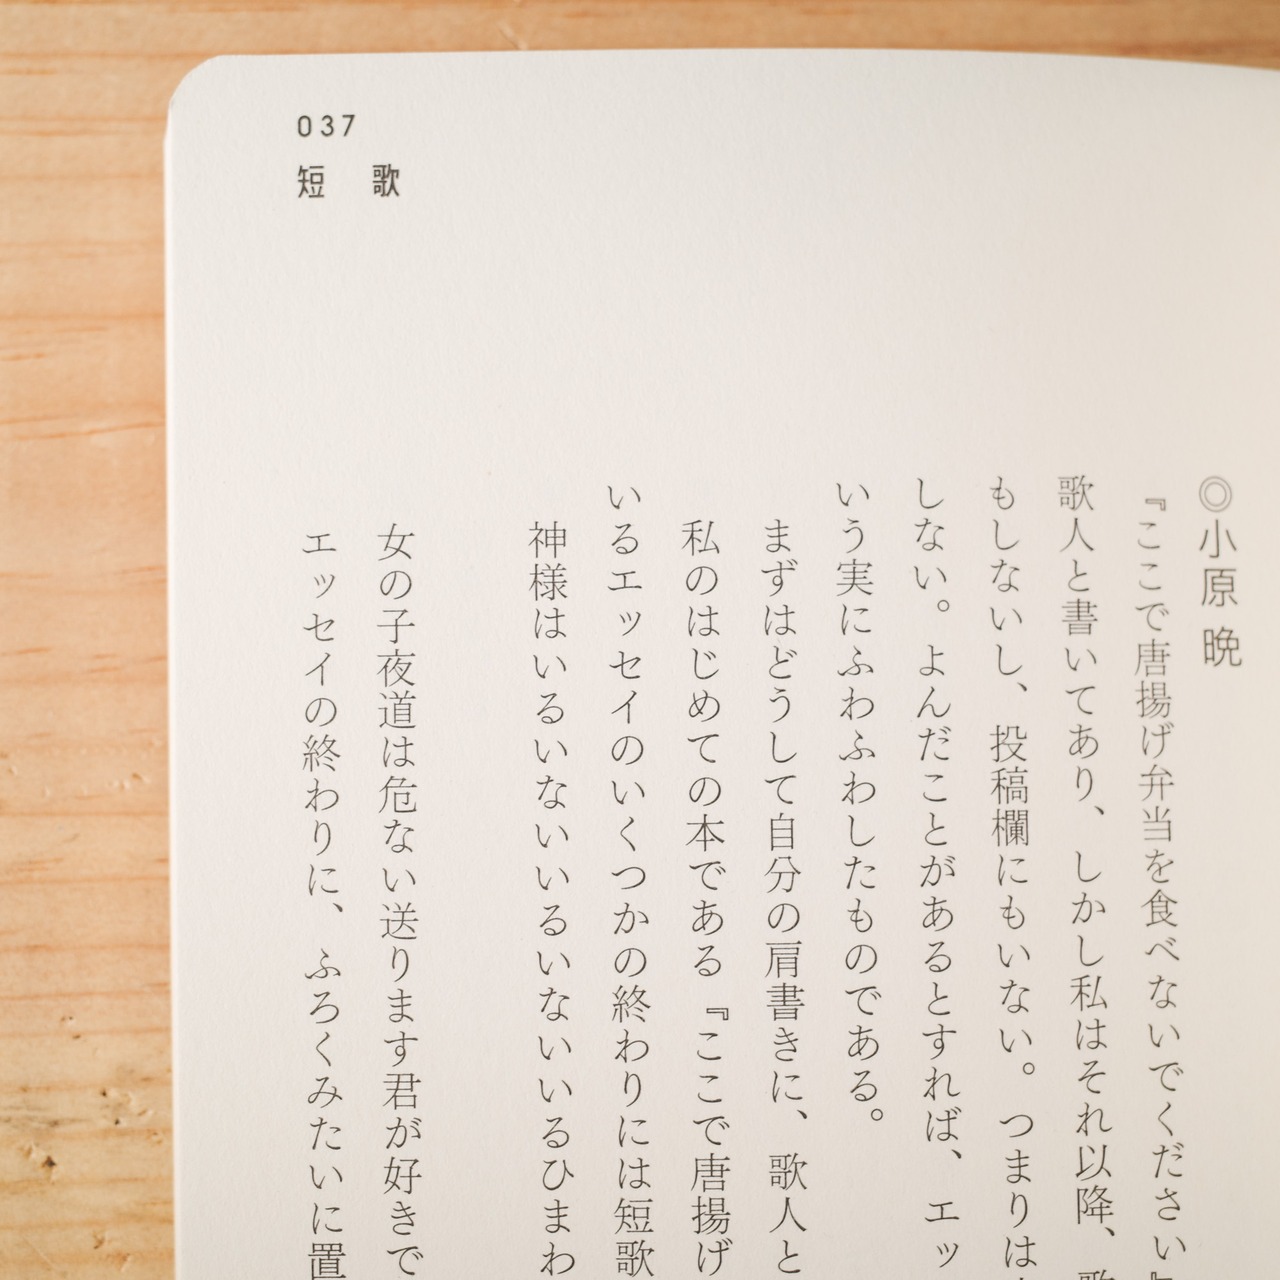 037
短歌
◎小原晩
『ここで唐揚げ弁当を食べないでください』
歌人と書いてあり、しかし私はそれ以降、歌
もしないし、投稿欄にもいない。つまりは
しない。よんだことがあるとすれば、エッ
いう実にふわふわしたものである。
まずはどうして自分の肩書きに、歌人と
私のはじめての本である『ここで唐揚げ
いるエッセイのいくつかの終わりには短歌
神様はいるいないいるいないいるひまわ
女の子夜道は危ない送ります君が好きで
エッセイの終わりに、ふろくみたいに置